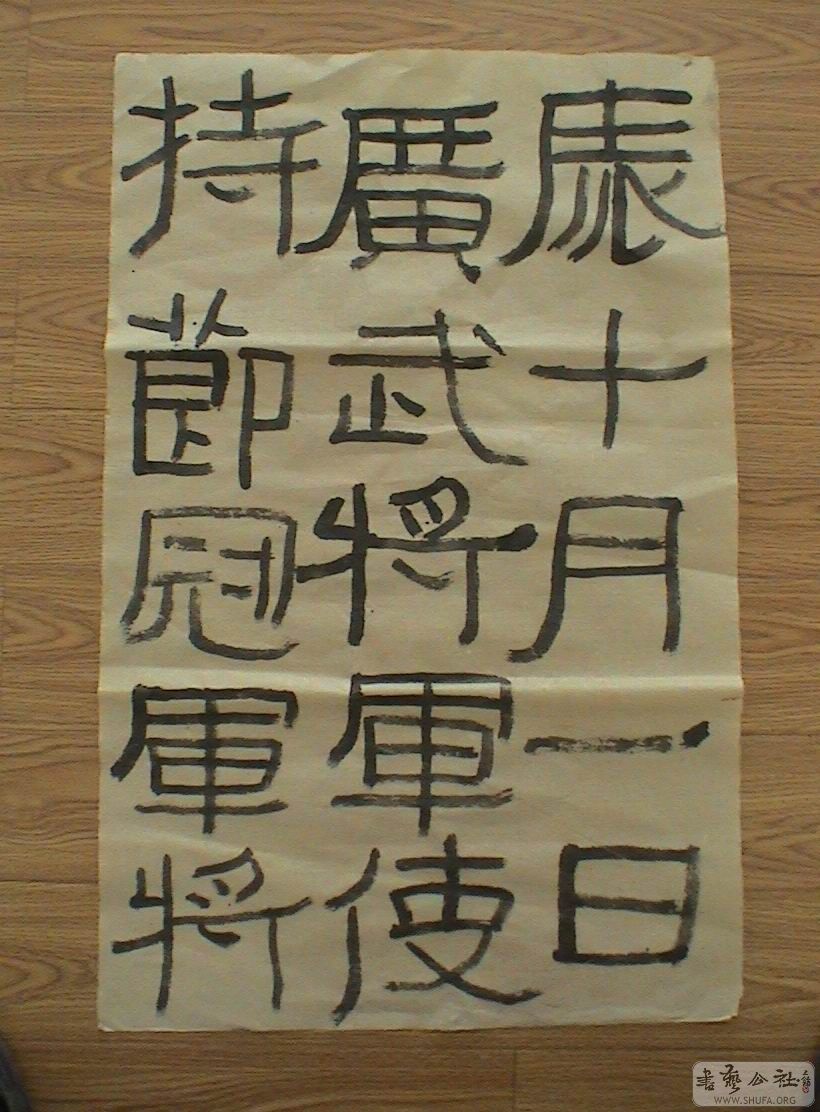 辰十月一日
廣武將軍使
持節冠軍將
書藝公社
WWW.SHUFA.ORG